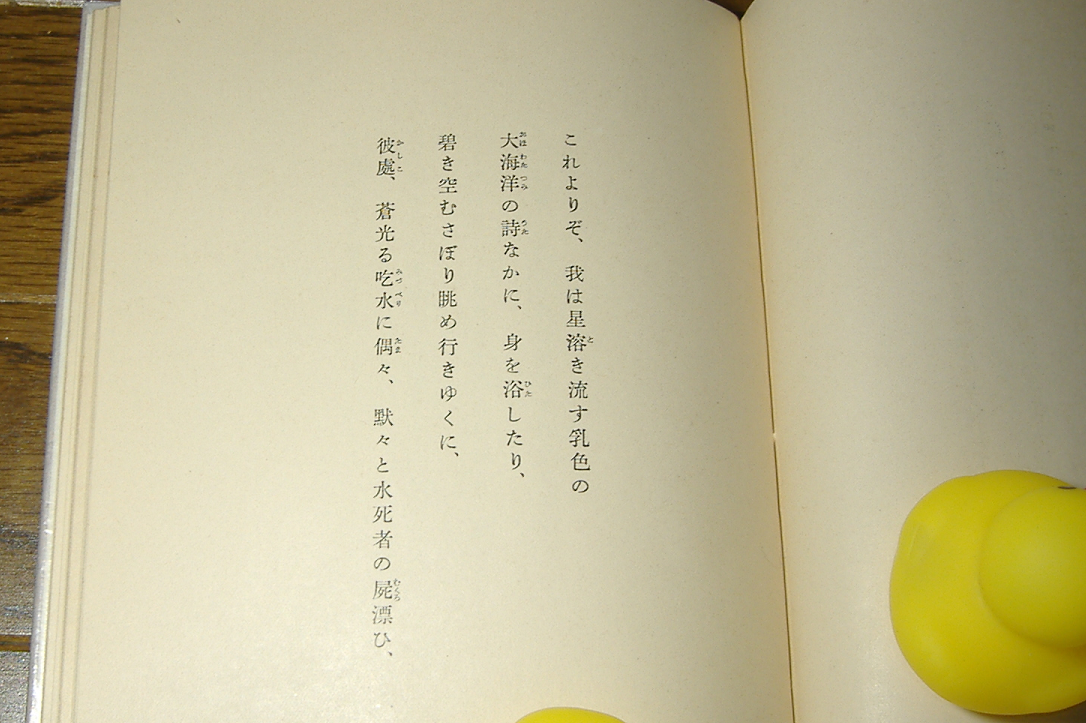 これよりぞ、我は星溶き流す乳色の
大海洋の詩なかに、身を浴したり、
碧き空むさぼり眺め行きゆくに、
彼處、蒼光る吃水に偶々、默々と水死者の屍漂ひ、